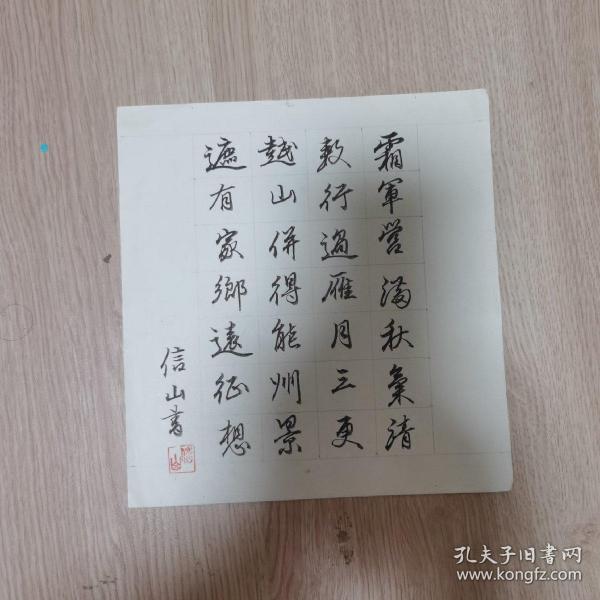 霜軍營滿秋氣清
數行過雁月三更
越山併得能州景
遮有家鄉遠征想
信山書
孔夫子旧书网
www.kongfz.com